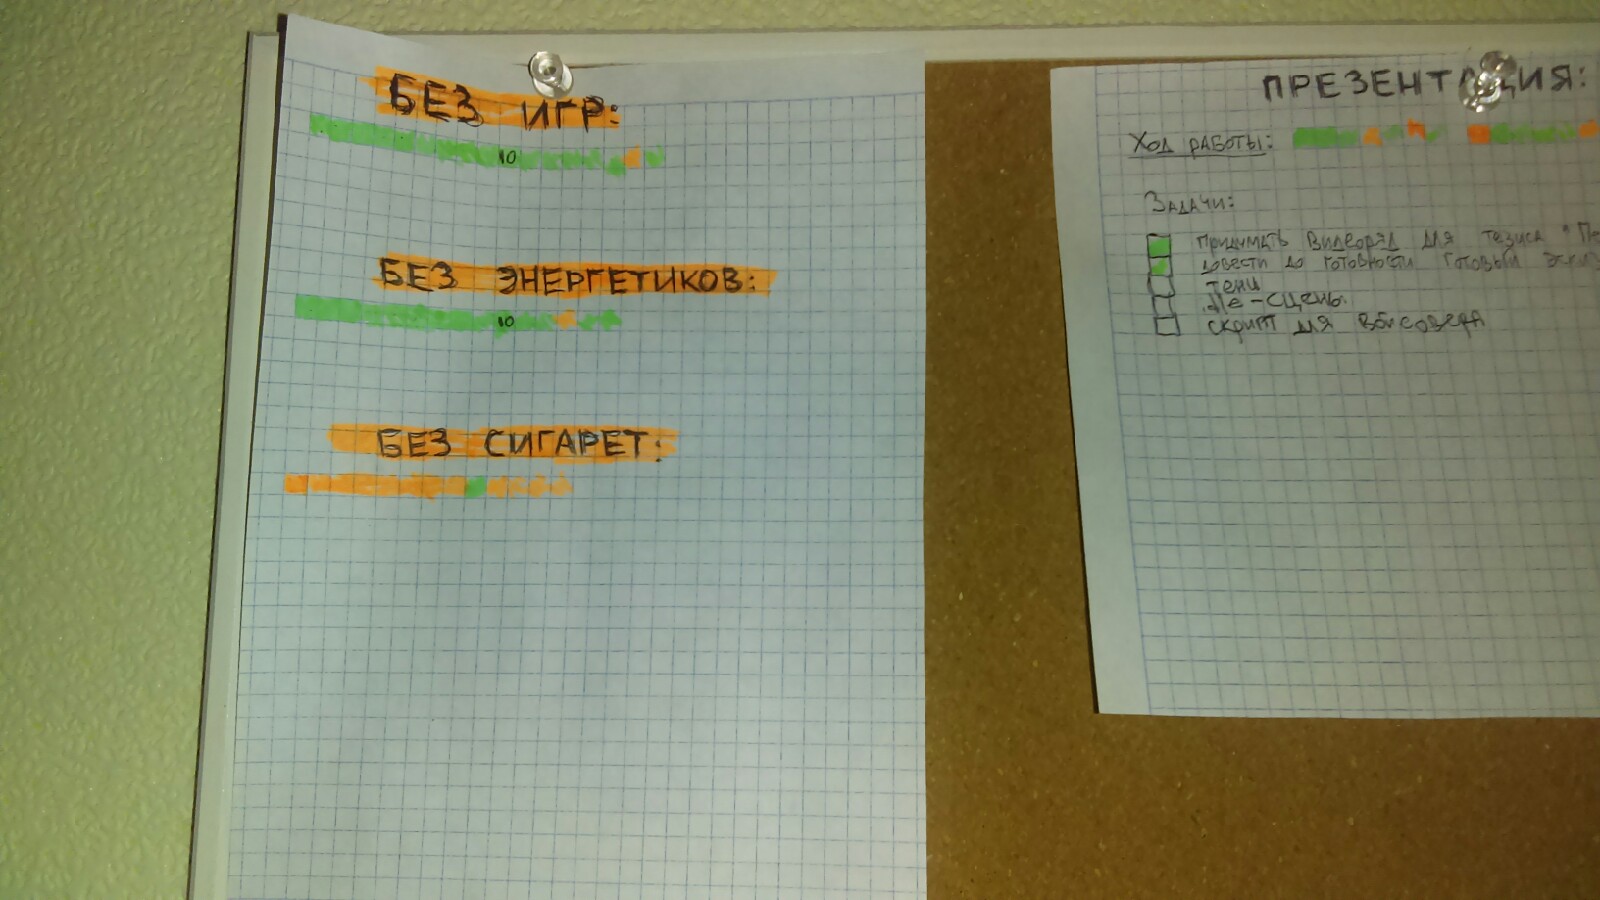 БЕЗ ИГР:
10
БЕЗ ЭНЕРГЕТИКОВ:
10
БЕЗ СИГАРЕТ:
ПРЕЗЕНТАЦИЯ:
Ход работы:
Задачи:
придумать видеоряд для тезиса "Пе
довести до готовности готовый эски
тени
скрипт для войсовера